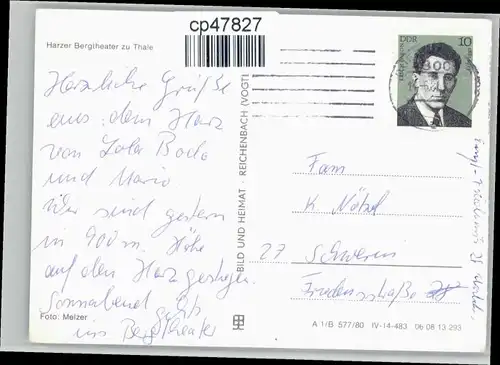 cp47827
Harzer Bergtheater zu Thale
Herzliche Grüße
aus dem Harz
von
und Mario
Wir sind gestern
in 900 m Höhe
auf den Harz gestiegen.
Sonnabend geht's
ins Bergtheater
Foto: Melzer
BILD UND HEIMAT · REICHENBACH (VOGTL
DDR
10
Fam
K Nötzel
27 Schwerin
Friedensstraße
A 1/B 577/80 IV-14-483 06 08 13 293